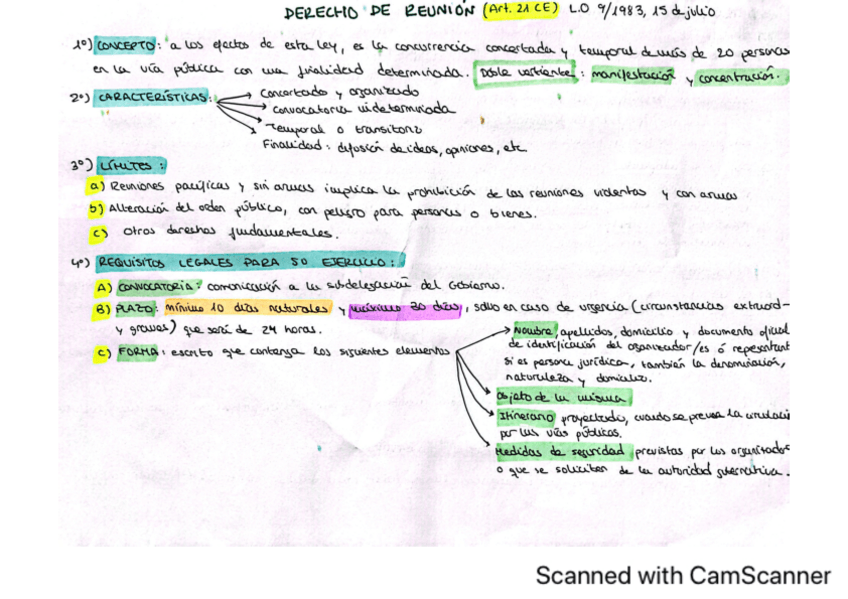 DERECHO DE REUNIÓN (Art. 21 CE) L.O 9/1983, 15 de julio
1º) CONCEPTO: a los efectos de esta ley, es la concurrencia concertada y temporal de más de 20 personas
en la vía pública con una finalidad determinada. Doble vertiente: manifestación y concentración.
2º) CARACTERÍSTICAS:
Concertado y organizado
Convocatoria indeterminada
Temporal o transitorio
Finalidad: difusión de ideas, opiniones, etc
3º) LÍMITES:
a) Reuniones pacíficas y sin armas implica la prohibición de las reuniones violentas y con armas
b) Alteración del orden público, con peligro para personas o bienes.
c) Otros derechos fundamentales.
4º) REQUISITOS LEGALES PARA SO EJERCICIO:
A) CONVOCATORIA: comunicación a la subdelegación del Gobierno.
B) PLAZO: mínimo 10 días naturales y máximo 30 días, salvo en caso de urgencia (circunstancias extraord-
y graves) que será de 24 horas.
C) FORMA: escrito que contenga los siguientes elementos
Nombre, apellidos, domicilio y documento oficial
de identificación del organizador/es ó representant
si es persona jurídica, también la denominación,
naturaleza y domicilio.
Objeto de la misma
Itinerario proyectado, cuando se prevea la circulació
por las vías públicas.
Medidas de seguridad previstas por los organizador
o que se soliciten de la autoridad gubernativa.
Scanned with CamScanner